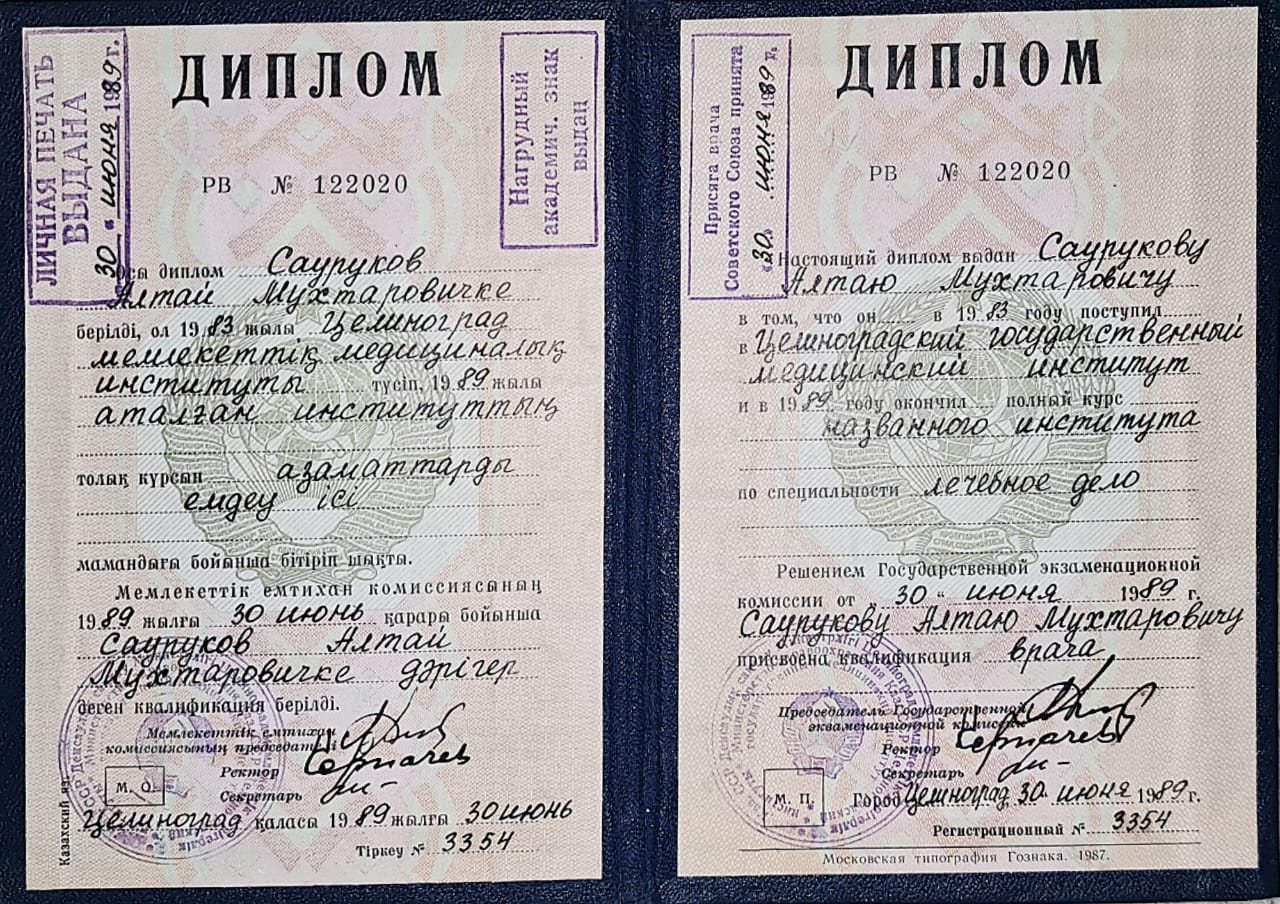 ЛИЧНАЯ ПЕЧАТЬ
ВЫДАНА
30 " июня 1989 г.
ДИПЛОМ
Нагрудный
академич. знак
выдан
РВ № 122020
Осы диплом Сауруков
Алтай Мухтаровичке
берілді, ол 1983 жылы Целиноград
мемлекеттік медициналық
институты түсіп, 1989 жылы
аталған институттың
толық курсын азаматтарды
емдеу ісі
мамандығы бойынша бітіріп шықты.
Мемлекеттік емтихан комиссиясының
1989 жылғы 30 июнь қарары бойынша
Сауруков Алтай
Мухтаровичке дәрігер
деген квалификация берілді.
Мемлекеттік емтихан
комиссиясының председателі
Ректор
Секретарь
М. О.
Целиноград қаласы 1989 жылғы 30 июнь
Тіркеу № 3354
Казахский яз.
Присяга врача
Советского Союза принята
"30 июня 1989 г.
ДИПЛОМ
РВ № 122020
Настоящий диплом выдан Саурукову
Алтаю Мухтаровичу
в том, что он в 1983 году поступил
в Целиноградский государственный
медицинский институт
и в 1989 году окончил полный курс
названного института
по специальности лечебное дело
Решением Государственной экзаменационной
комиссии от 30 " июня 1989 г.
Саурукову Алтаю Мухтаровичу
присвоена квалификация врача
Председатель Государственной
экзаменационной комиссии
Ректор
Секретарь
М. П.
Город Целиноград 30 июня 1989 г.
Регистрационный № 3354
Московская типография Гознака. 1987.